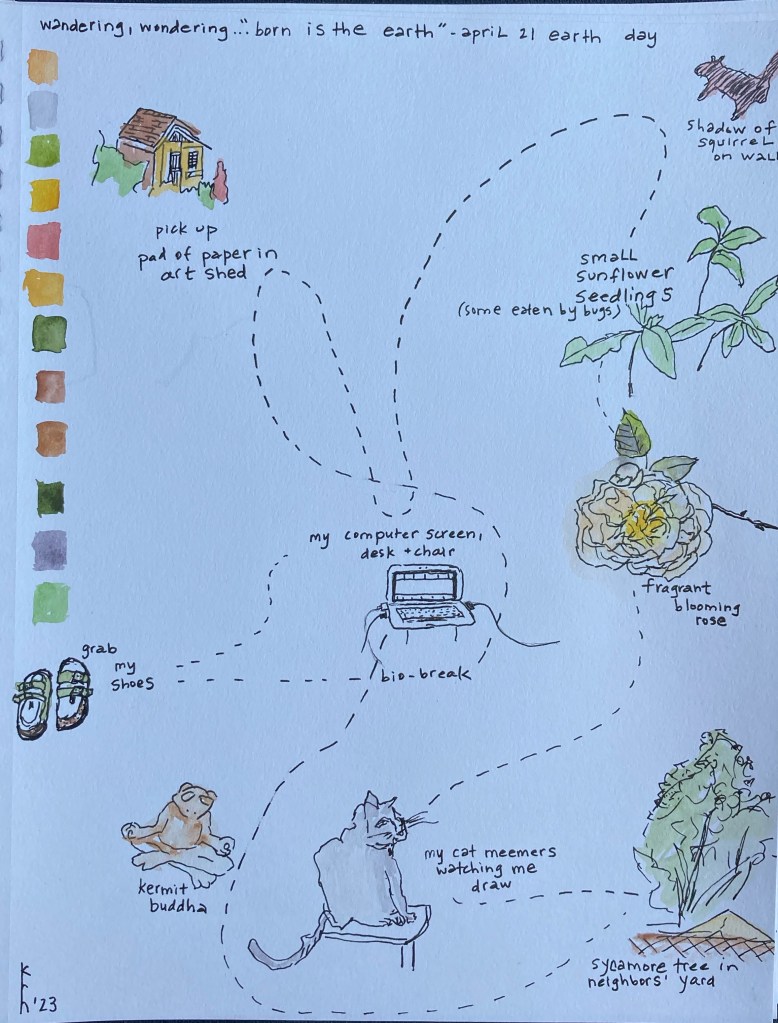 wandering, wondering..."born is the earth" - april 21 earth day
shadow of
squirrel
on wall
pick up
pad of paper in
art shed
small
sunflower
seedlings
(some eaten by bugs)
fragrant
blooming
rose
my computer screen,
desk + chair
grab
my
shoes
bio-break
my cat meemers
watching me
draw
kermit
buddha
sycamore tree in
neighbors' yard
k
r
h '23